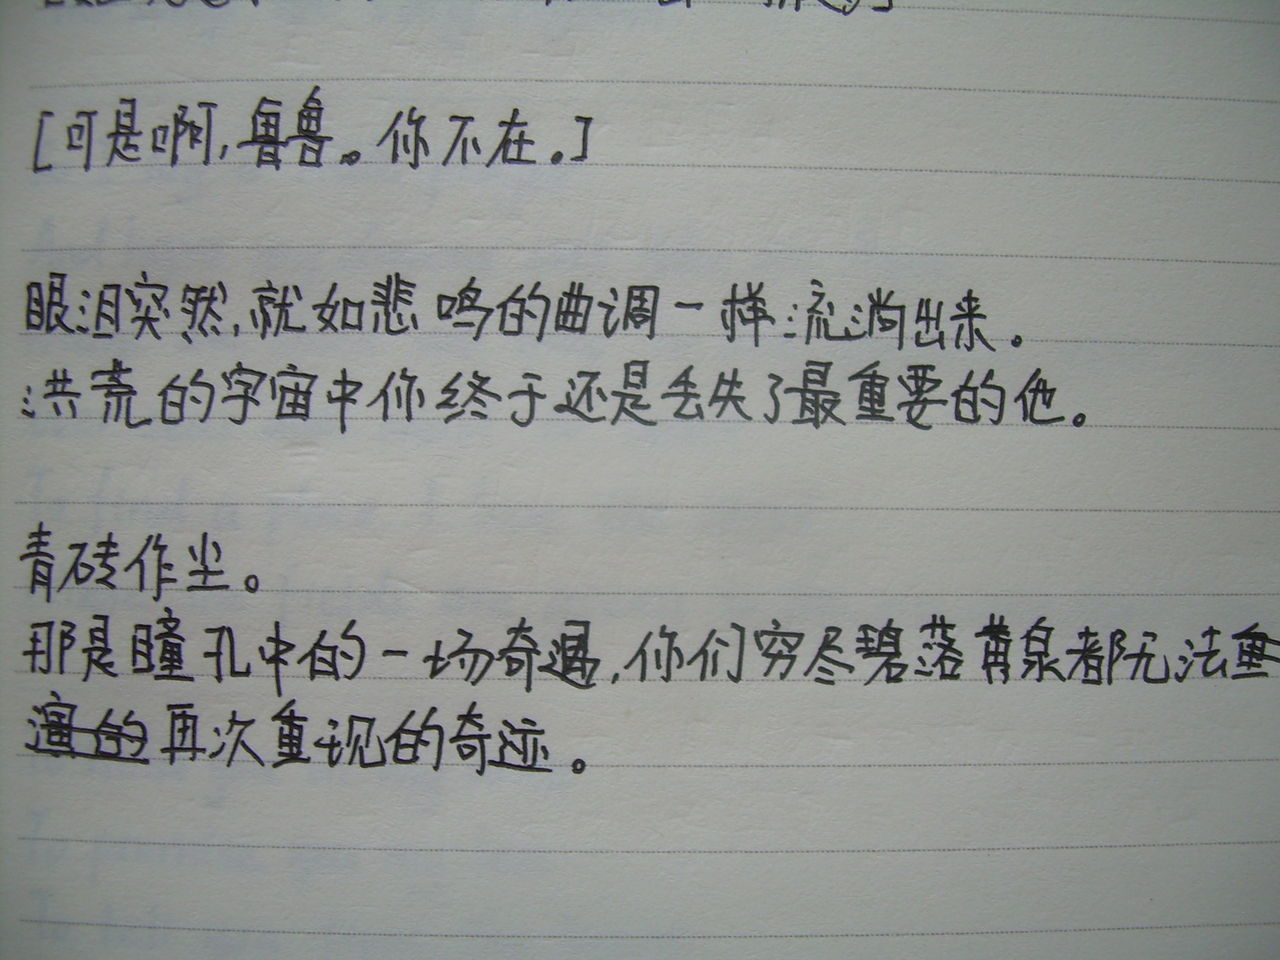 [可是啊,鲁鲁。你不在。]
眼泪突然,就如悲鸣的曲调一样流淌出来。
洪荒的宇宙中你终于还是丢失了最重要的他。
青砖作尘。
那是瞳孔中的一场奇遇,你们穷尽碧落黄泉都无法重
演的再次重现的奇迹。